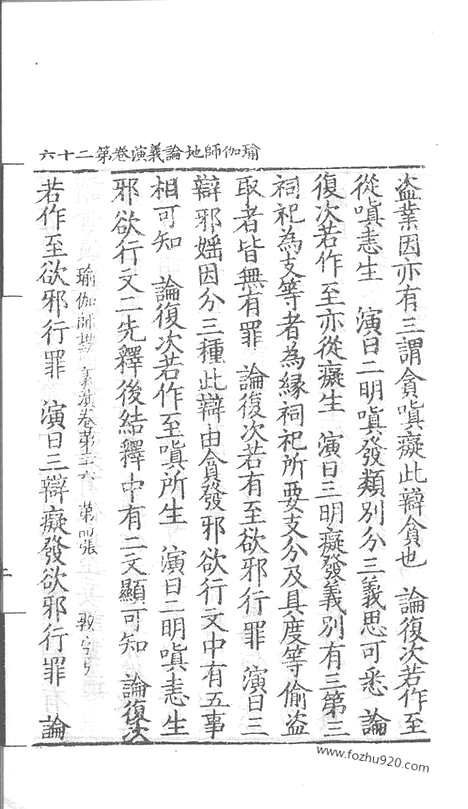 瑜伽師地論義演卷第二十六
盜業因亦有三謂貪嗔癡此辯貪也　論復次若作至
從嗔恚生　演曰二明嗔發類別分三義思可悉　論
復次若作至亦從癡生　演曰三明癡發義別有三第三
祠祀為支等者為緣祠祀所要支分及具度等偷盜
取者皆無有罪　論復次若有至欲邪行罪　演曰三
辯邪婬因分三種此辯由貪發邪欲行文中有五事
相可知　論復次若作至嗔所生　演曰二明嗔恚生
邪欲行文二先釋後結釋中有二文顯可知　論復次
瑜伽師地 義演卷第二六　第四張
若作至欲邪行罪　演曰三辯癡發欲邪行罪　論
www.fozhu920.com